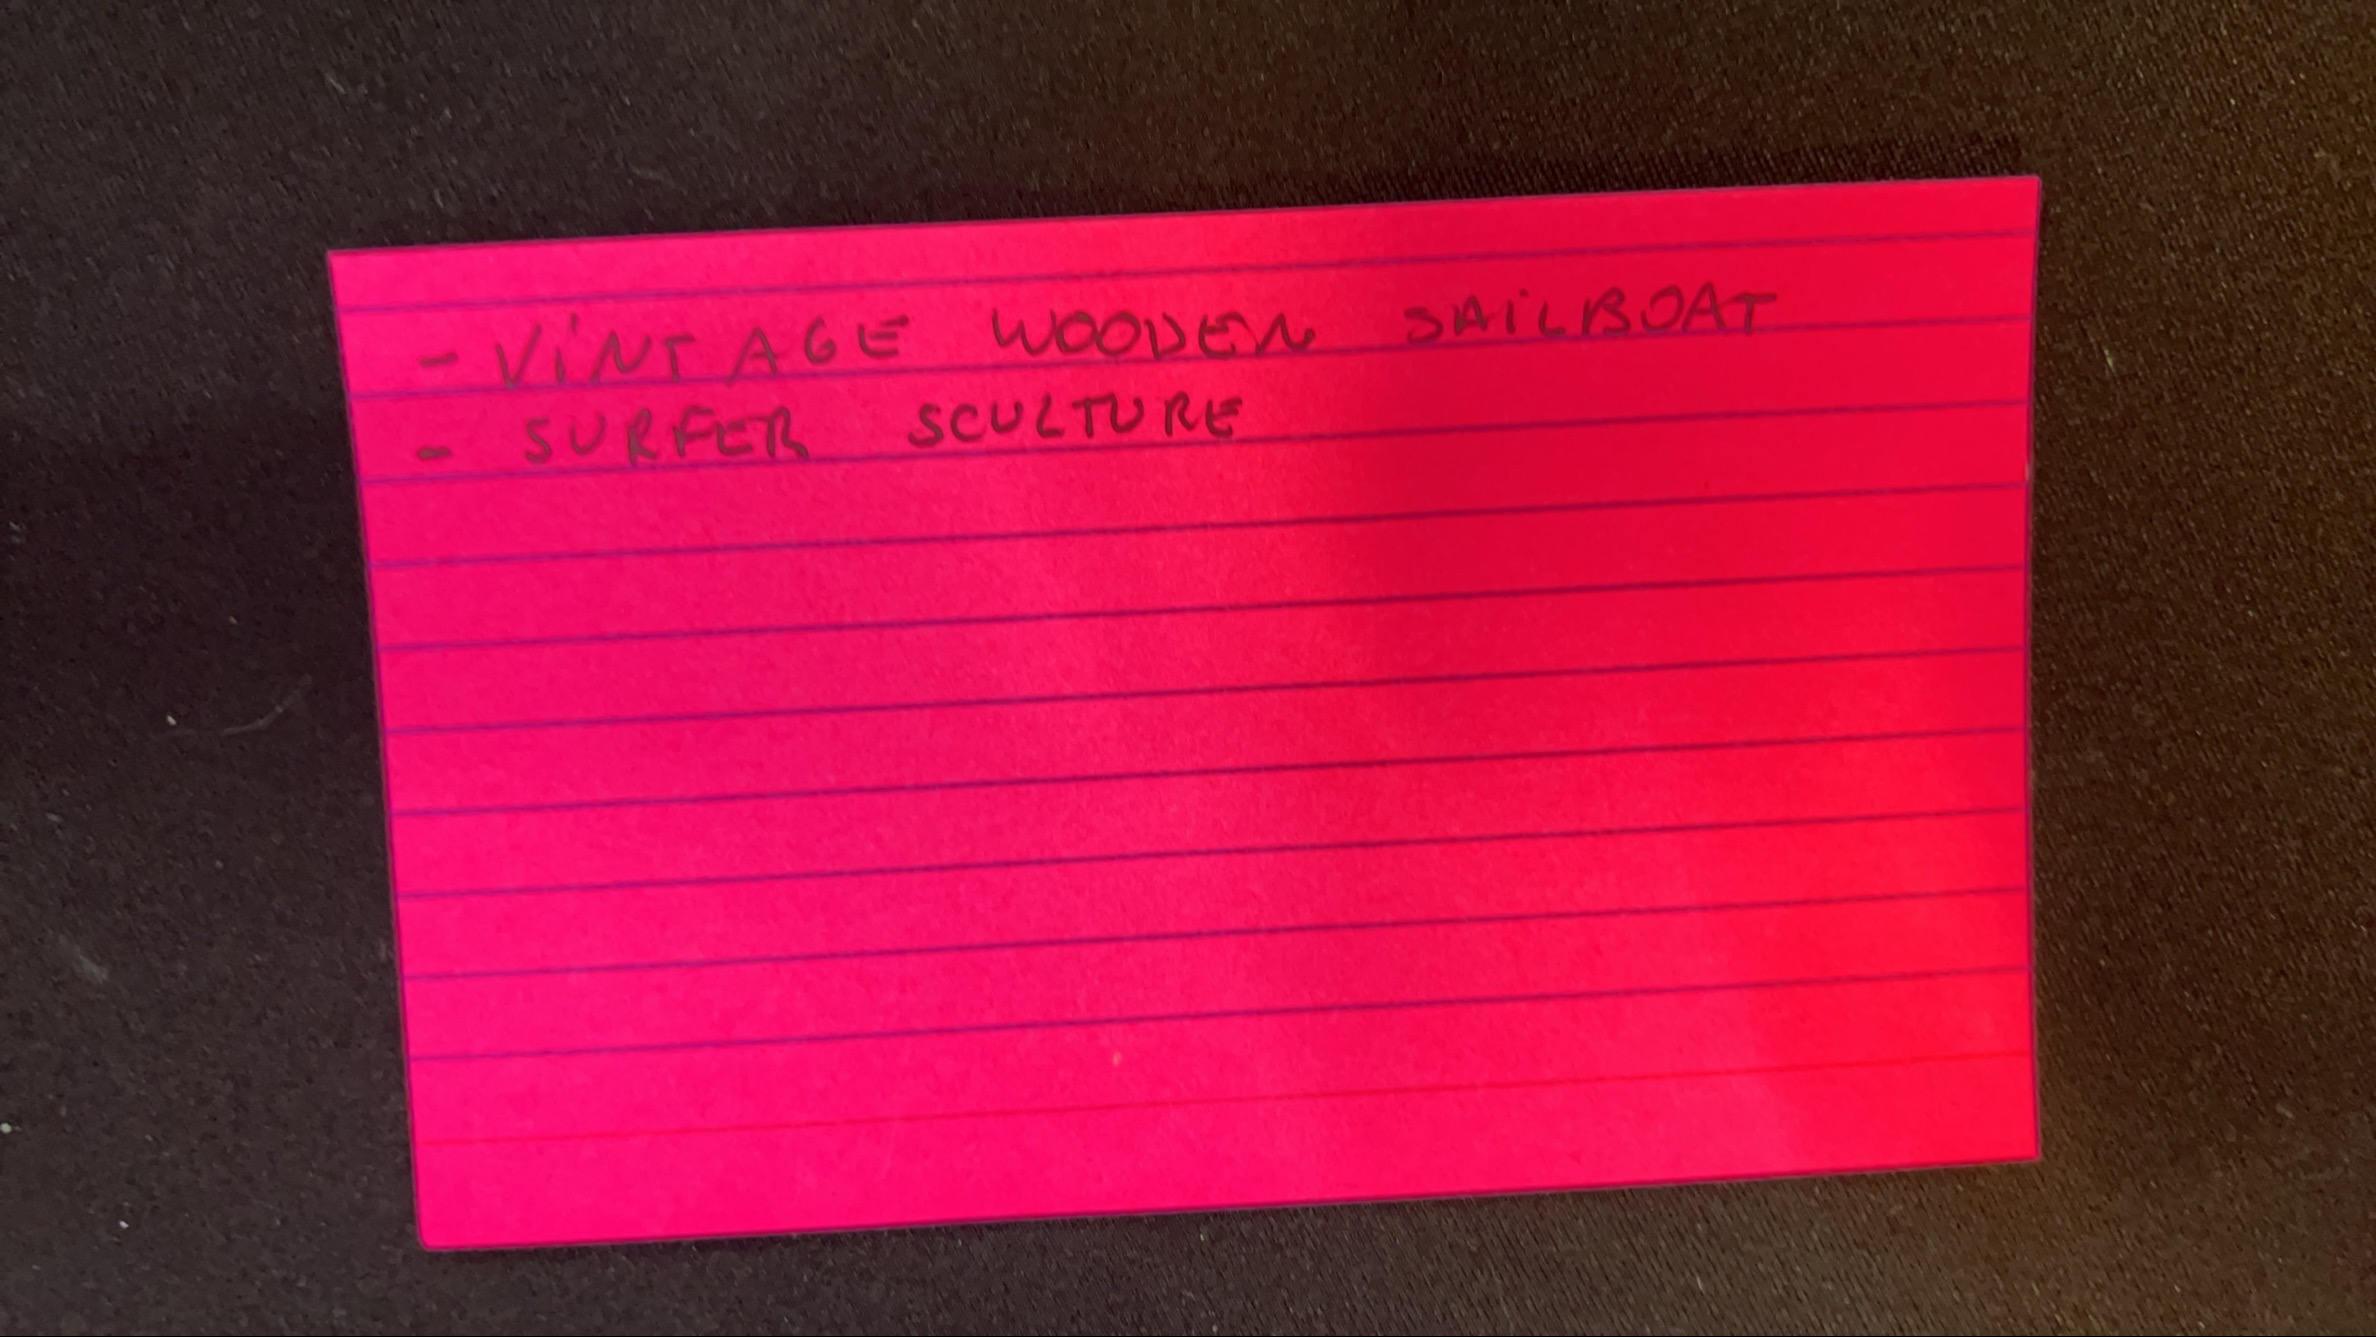 - ViNTAGE WOODEN SAiLBOAT
- SURFER SCULTURE